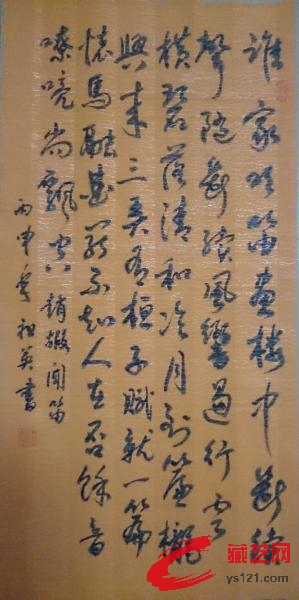 誰家吹笛畫樓中斷續
聲隨斷續風響遏行雲
橫碧落清和冷月到簾櫳
興來三弄有桓子賦就一篇
懷馬融曲罷不知人在否餘音
嘹喨尚飄空趙嘏聞笛
丙申年祖英書
藏艺网
ys121.com